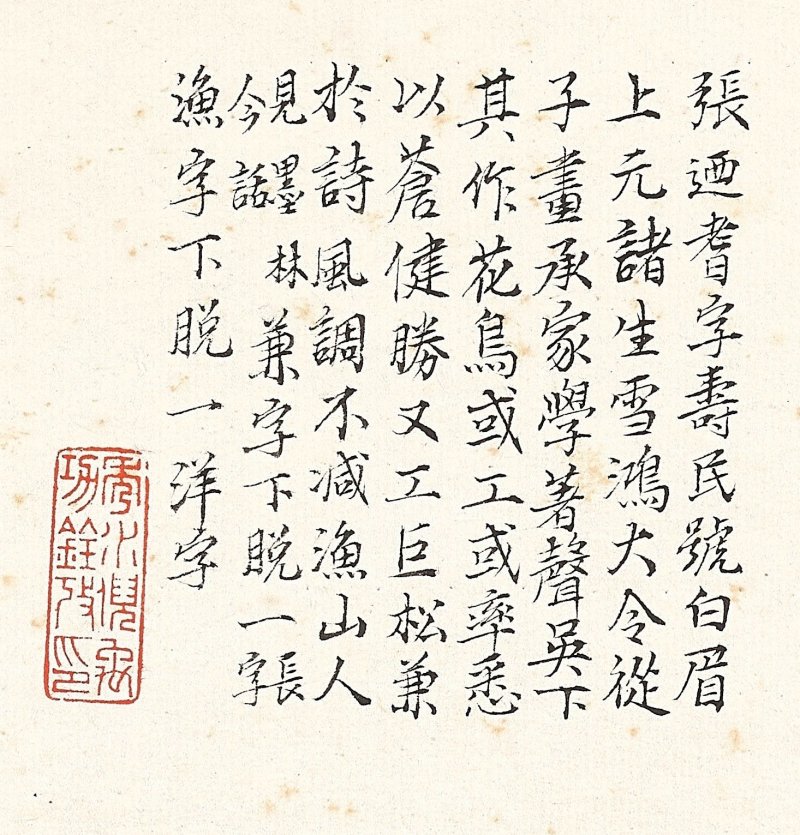 張迺耆字壽民號白眉
上元諸生雪鴻大令從
子畫承家學著聲吳下
其作花鳥或工或率悉
以蒼健勝又工巨松兼
於詩風調不減漁山人
見墨林
今話
兼字下脫一
張
字
漁字下脫一洋字